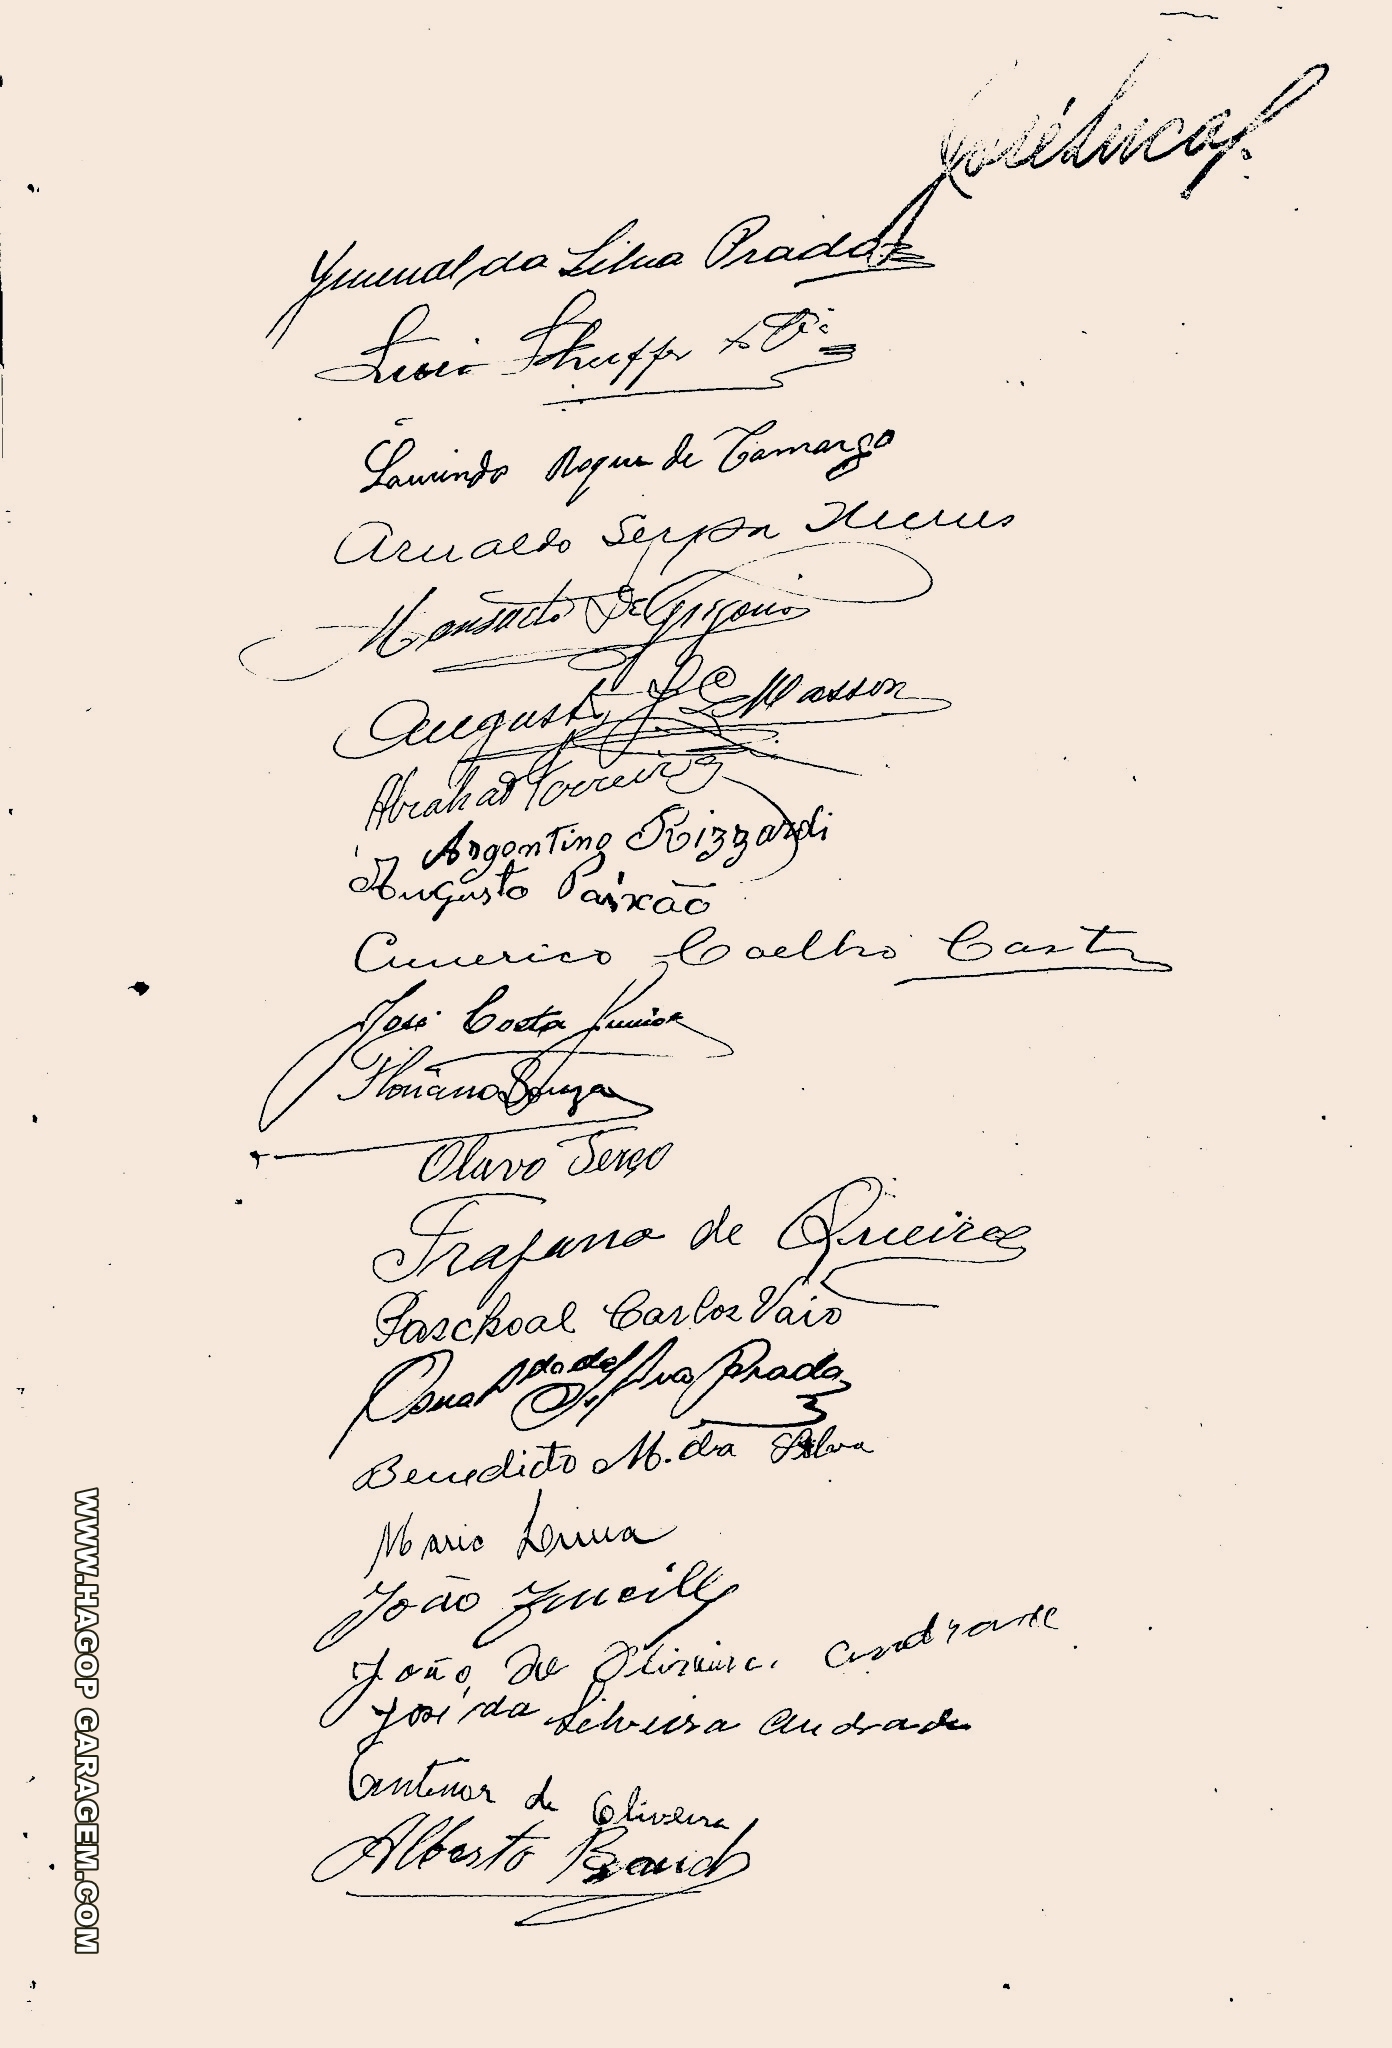 José Lucas.
da Silva Prado
Laurindo Roque de Camargo
Arnaldo Serpa Nunes
De Gregorio
Augusto Masson
Abrahao Ferreira
Argentino Rizzardi
Augusto Paixão
Americo Coelho Castro
José Costa Junior
Floriano Souza
Olavo Serço
Trajano de Queiroz
Paschoal Carlos Vaio
Osvaldo da Silva Prado
Benedicto M. da Silva
Mario Lima
João
João de Oliveira Andrade
José da Silveira Andrade
Antenor de Oliveira
Alberto
WWW.HAGOP GARAGEM.COM